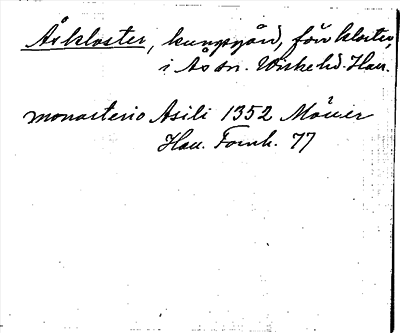 Åskloster, kungsgård, förr kloster,
i Ås sn. Viske hd. Hall.
monasterio Asili 1352 Möller
Hall. Fornh. 77